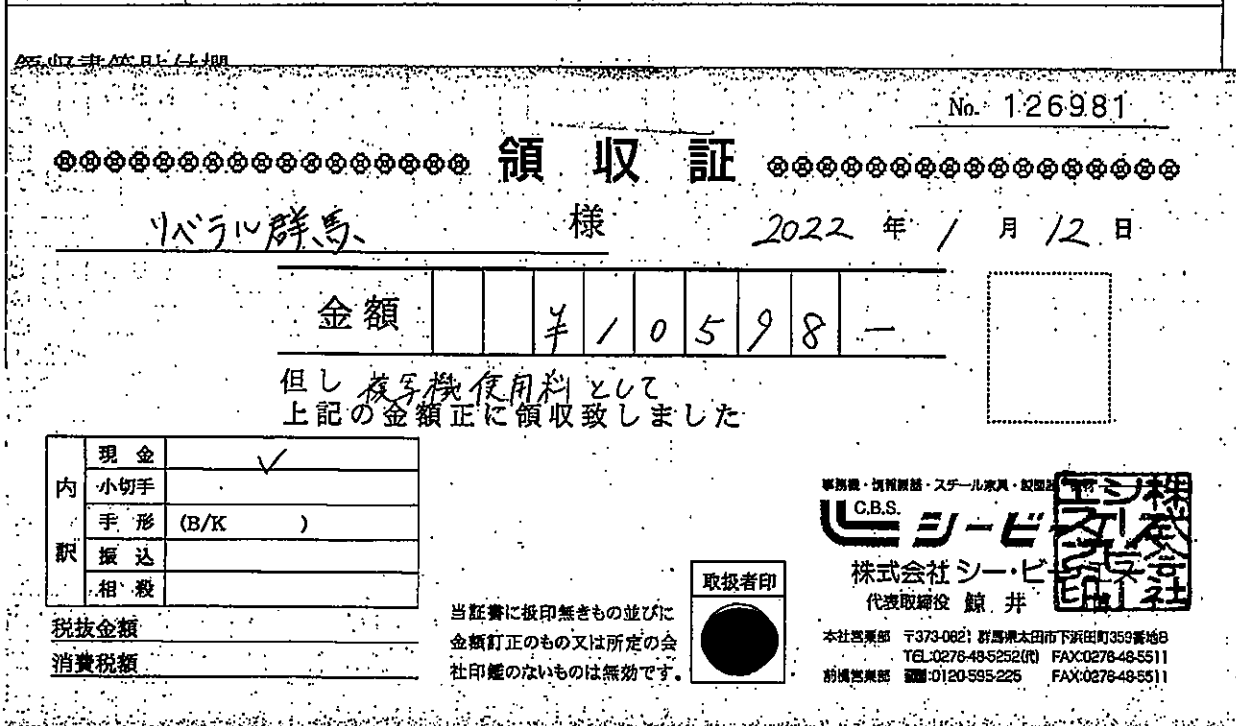 領収書等貼付欄
No. 126981
領収証
リベラル群馬 様 2022年1月12日
金額 ¥10598-
但し 複写機使用料として
上記の金額正に領収致しました
内訳
現金 ✓
小切手
手形 (B/K )
振込
相殺
税抜金額
消費税額
当証書に扱印無きもの並びに
金額訂正のもの又は所定の会
社印鑑のないものは無効です。
取扱者印
C.B.S.
シービー
株式会社 シー・ビー
代表取締役 鯨井
本社営業部 〒373-0821 群馬県太田市下浜田町359番地8
TEL:0276-48-5252(代) FAX:0276-48-5511
前橋営業部 :0120-595-225 FAX:0276-48-5511